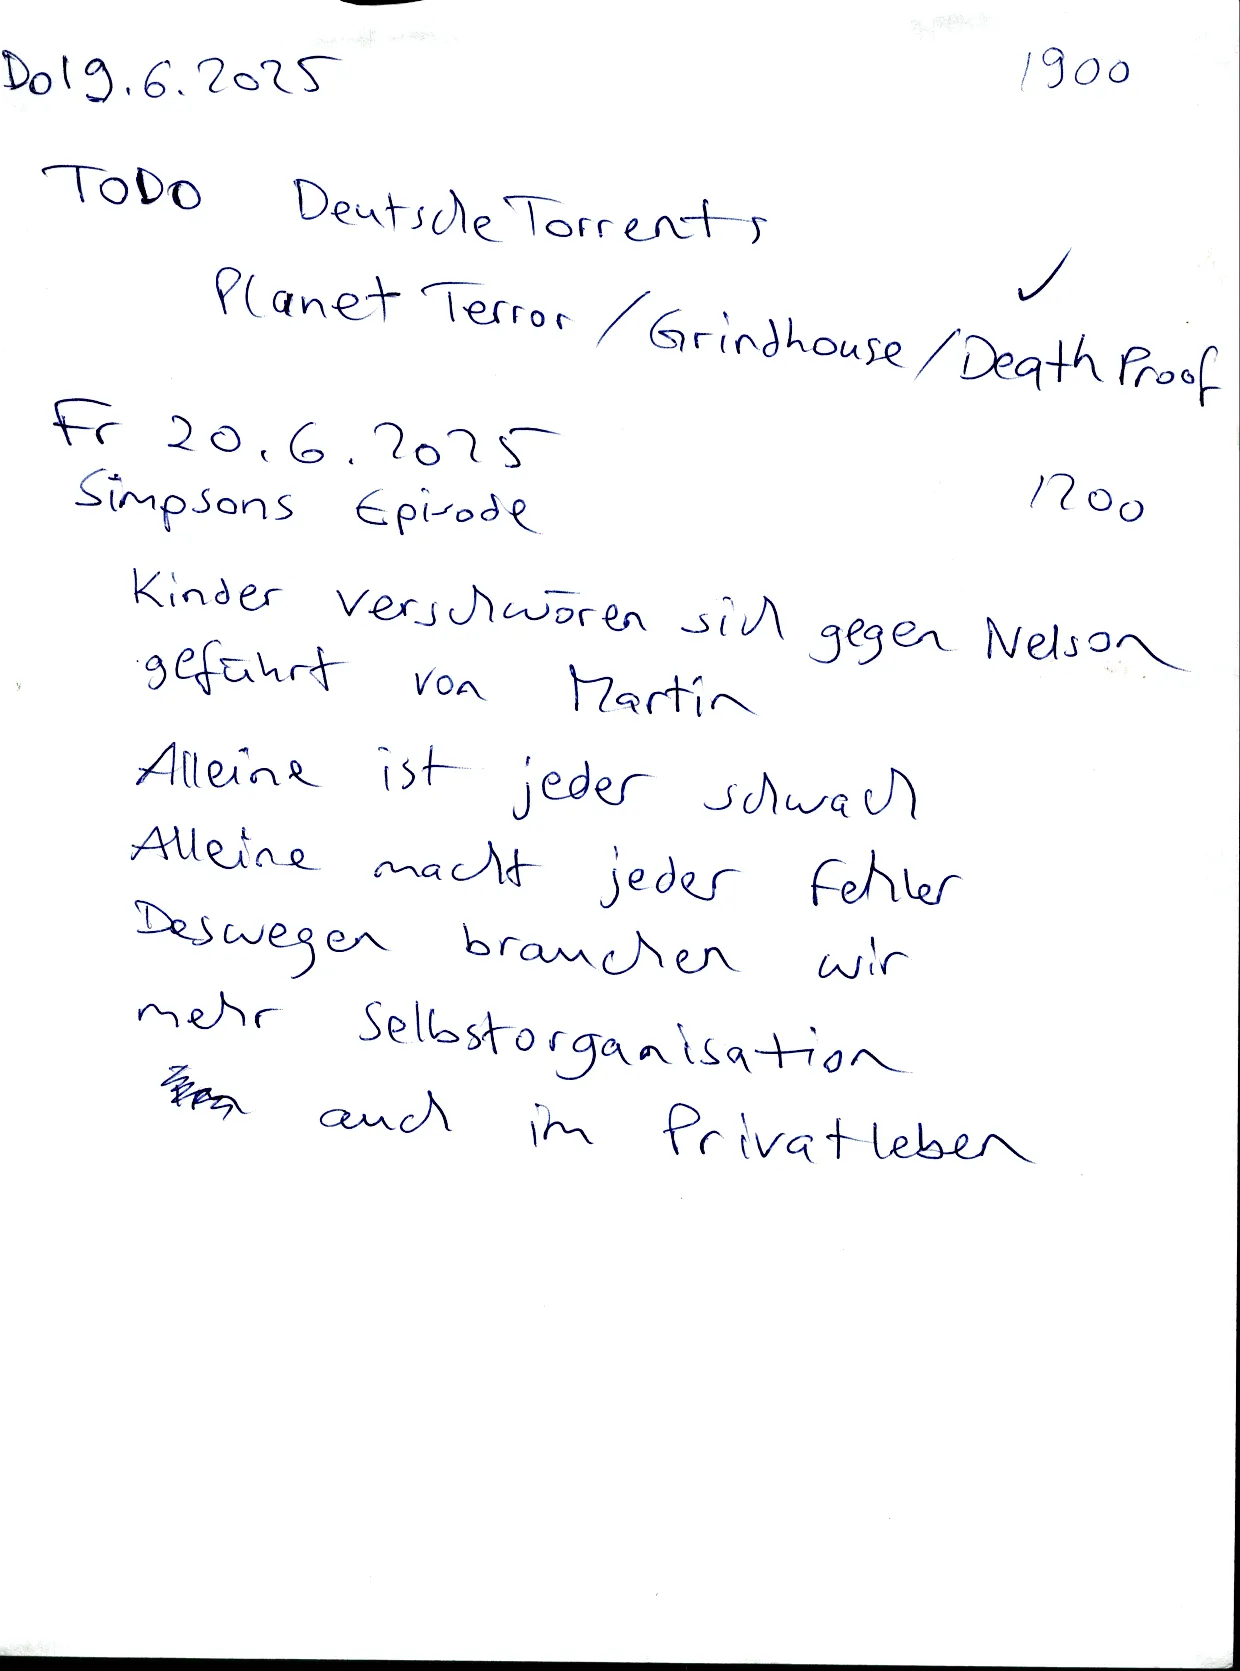 Do 19.6.2025 1900
TODO Deutsche Torrents
Planet Terror / Grindhouse / Death Proof ✓
Fr 20.6.2025
Simpsons Episode 1200
Kinder verschwören sich gegen Nelson
geführt von Martin
Alleine ist jeder schwach
Alleine macht jeder Fehler
Deswegen brauchen wir
mehr Selbstorganisation
auch im Privatleben